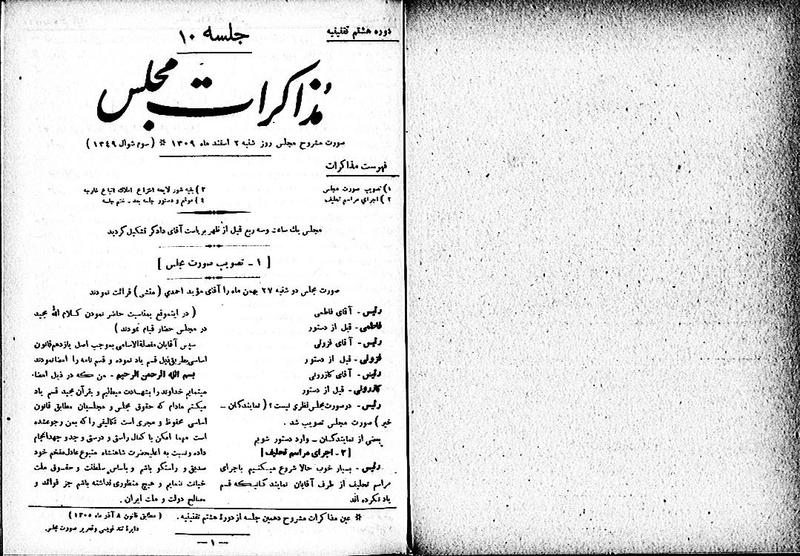 دوره هشتم تقنینیه
جلسه ۱۰
مذاکرات مجلس
صورت مشروح مجلس روز شنبه ۲ اسفند ماه ۱۳۰۹ * (سوم شوال ۱۳۴۹)
فهرست مذاکرات
۱) تصویب صورت مجلس
۲) اجرای مراسم تحلیف
۳) بقیه شور لایحه انتزاع املاک اتباع خارجه
۴) موقع و دستور جلسه بعد ـ ختم جلسه
مجلس یک ساعت وسه ربع قبل از ظهر بریاست آقای دادگر تشکیل گردید
[ ۱ ـ تصویب صورت مجلس ]
صورت مجلس دو شنبه ۲۷ بهمن ماه را آقای مؤید احمدی (منشی) قرائت نمودند
رئیس ـ آقای فاطمی
فاطمی ـ قبل از دستور
رئیس ـ آقای قزولی
قزولی ـ قبل از دستور
رئیس ـ آقای کازرونی
کازرونی ـ قبل از دستور
رئیس ـ در صورت مجلس نظری نیست؟ (نمایندگان ـ
خیر) صورت مجلس تصویب شد .
بعضی از نمایندگان ـ وارد دستور شویم
[ ۲ ـ اجرای مراسم تحلیف ]
رئیس ـ بسیار خوب حالا شروع میکنیم باجرای
مراسم تحلیف از طرف آقایان نمایندگانیکه قسم
یاد نکرده اند
( در اینموقع بمناسبت حاضر نمودن کلام الله مجید
در مجلس حضار قیام نمودند )
سپس آقایان مفصلةالاسامی بموجب اصل یازدهم قانون
اساسی بطریق ذیل قسم یاد نموده و قسم نامه را امضا نمودند
بسم الله الرحمن الرحیم ـ من که در ذیل امضاء
مینمایم خداوند را بشهادت میطلبم و بقرآن مجید قسم یاد
میکنم مادام که حقوق مجلس و مجلسیان مطابق قانون
اساسی محفوظ و مجری است تکالیفی را که بمن رجوع شده
است مهما امکن با کمال راستی و درستی و جد و جهد انجام
داده و نسبت به اعلیحضرت شاهنشاه متبوع عادل مفخم خود
صدیق و راستگو باشم و باساس سلطنت و حقوق ملت
خیانت ننمایم و هیچ منظوری نداشته باشم جز فوائد و
مصالح دولت و ملت ایران .
* عین مذاکرات مشروح دهمین جلسه از دورهٔ هشتم تقنینیه .
( مطابق قانون ۸ آذر ماه ۱۳۰۵ )
دایرهٔ تند نویسی و تحریر صورت مجلس
ـ ۱ ـ